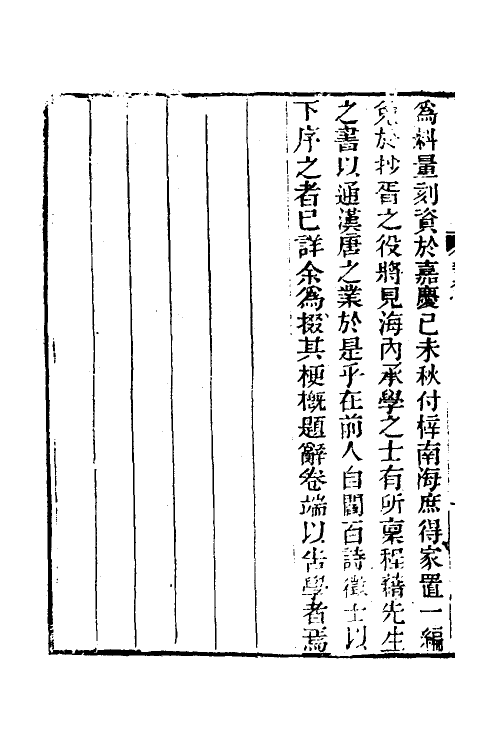 為料量刻資於嘉慶己未秋付梓南海庶得家置一編
免於抄胥之役將見海內承學之士有所稟程藉先生
之書以通漢唐之業於是乎在前人自閻百詩徵士以
下序之者已詳余為掇其梗槪題辭卷端以告學者焉